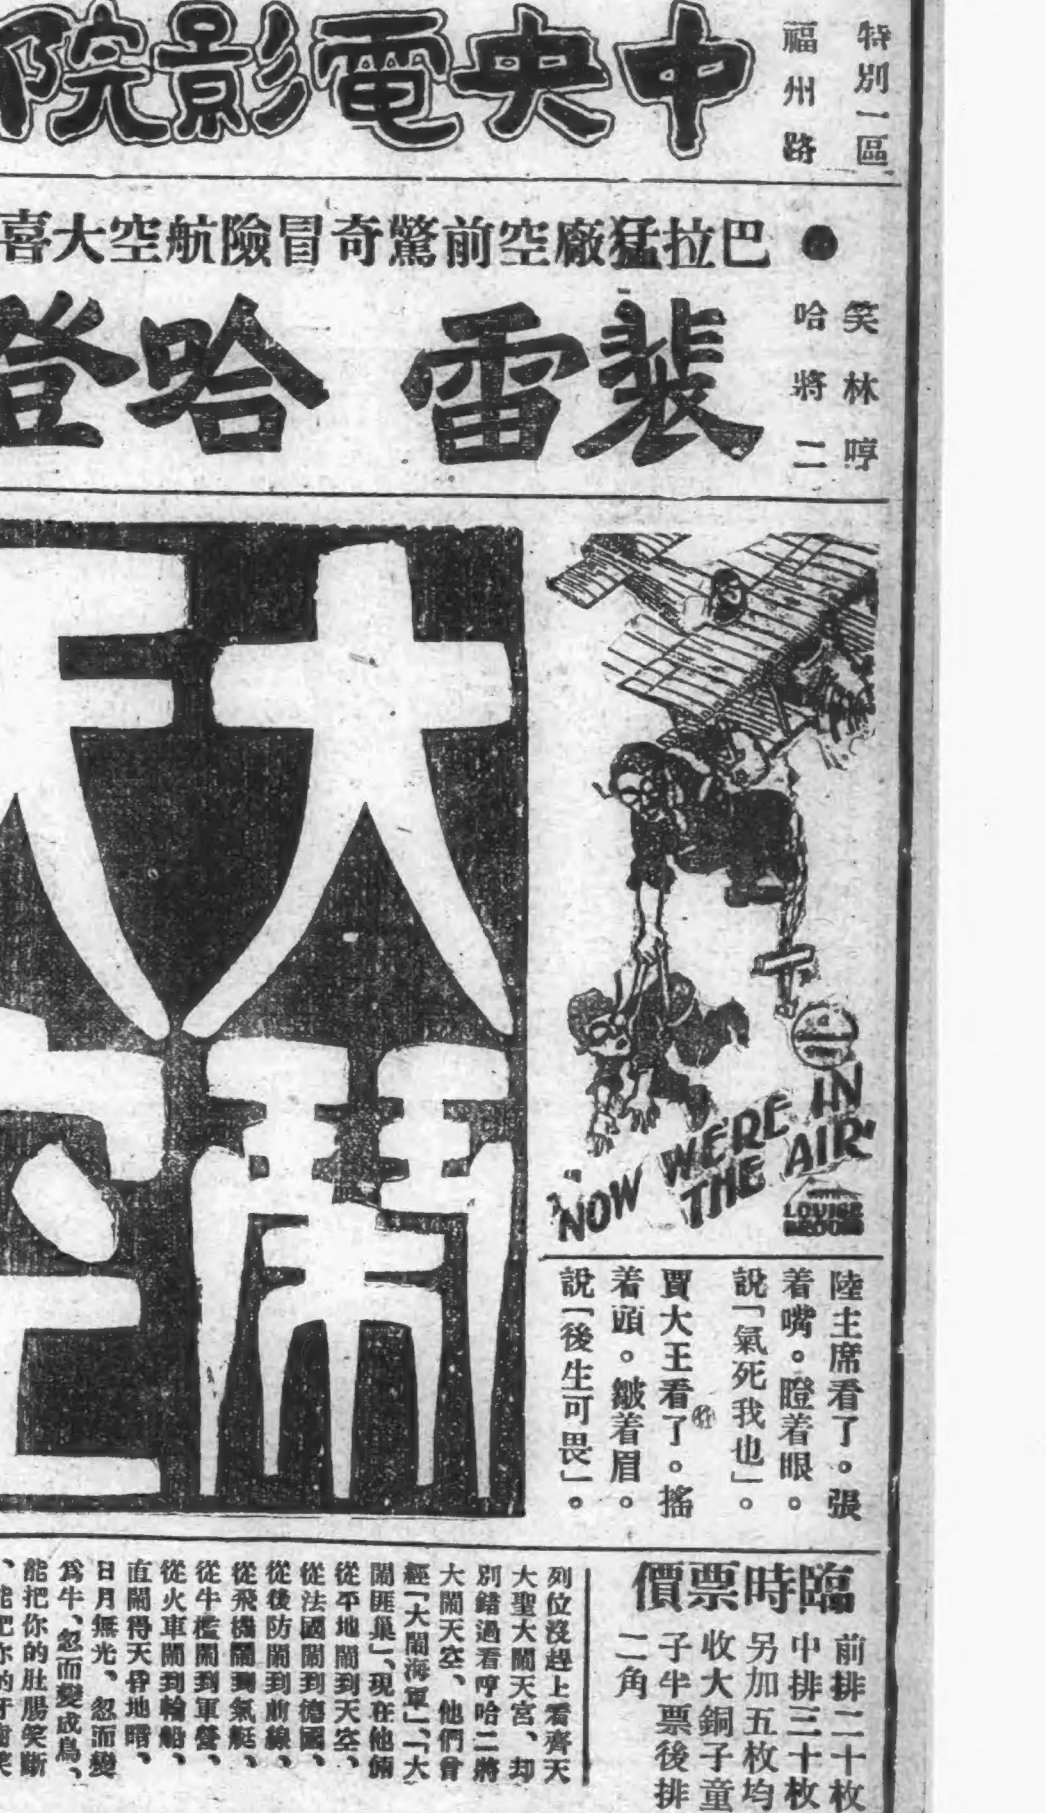 特別一區
福州路
中央電影院
巴拉猛廠空前驚奇冒險航空大喜
笑林哼
哈將二
裴雷 哈登
大
鬧
天
空
"NOW WE'RE IN
THE AIR"
LOUISE
BROOKS
陸主席看了。張
着嘴。瞪着眼。
說「氣死我也」。
賈大王看了。搖
着頭。皺着眉。
說「後生可畏」。
臨時票價
前排二十枚
中排三十枚
另加五枚均
收大銅子童
子半票後排
二角
列位沒趕上看齊天
大聖大鬧天宮、却
別錯過看哼哈二將
大鬧天空、他們曾
經「大鬧海軍」、「大
鬧匪巢」、現在他倆
從平地鬧到天空、
從法國鬧到德國、
從後防鬧到前線、
從飛機鬧到氣艇、
從牛檻鬧到軍營、
從火車鬧到輪船、
直鬧得天昏地暗、
日月無光、忽而變
爲牛、忽而變成鳥、
能把你的肚腸笑斷
、能把你的牙齒笑